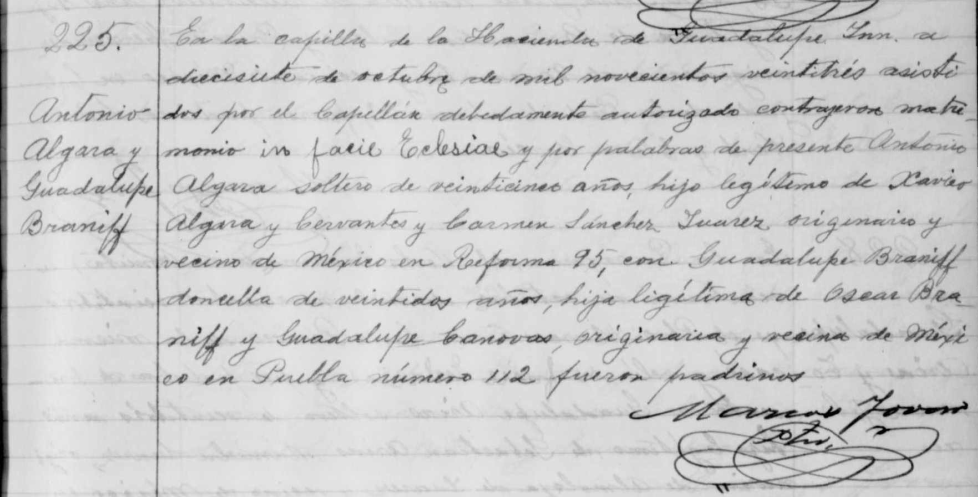 225.
Antonio
Algara y
Guadalupe
Braniff
En la capilla de la Hacienda de Guadalupe Inn. a
diecisiete de octubre de mil novecientos veintitrés asisti
dos por el Capellán debidamente autorizado contrajeron matri
monio in facie Eclesiae y por palabras de presente Antonio
Algara soltero de veinticinco años, hijo legítimo de Xavier
Algara y Cervantes y Carmen Sánchez Juarez originario y
vecino de México en Reforma 95, con Guadalupe Braniff
doncella de veintidos años, hija legítima de Oscar Bra
niff y Guadalupe Canovas, originaria y vecina de Méxi
co en Puebla número 112 fueron padrinos
Marcos